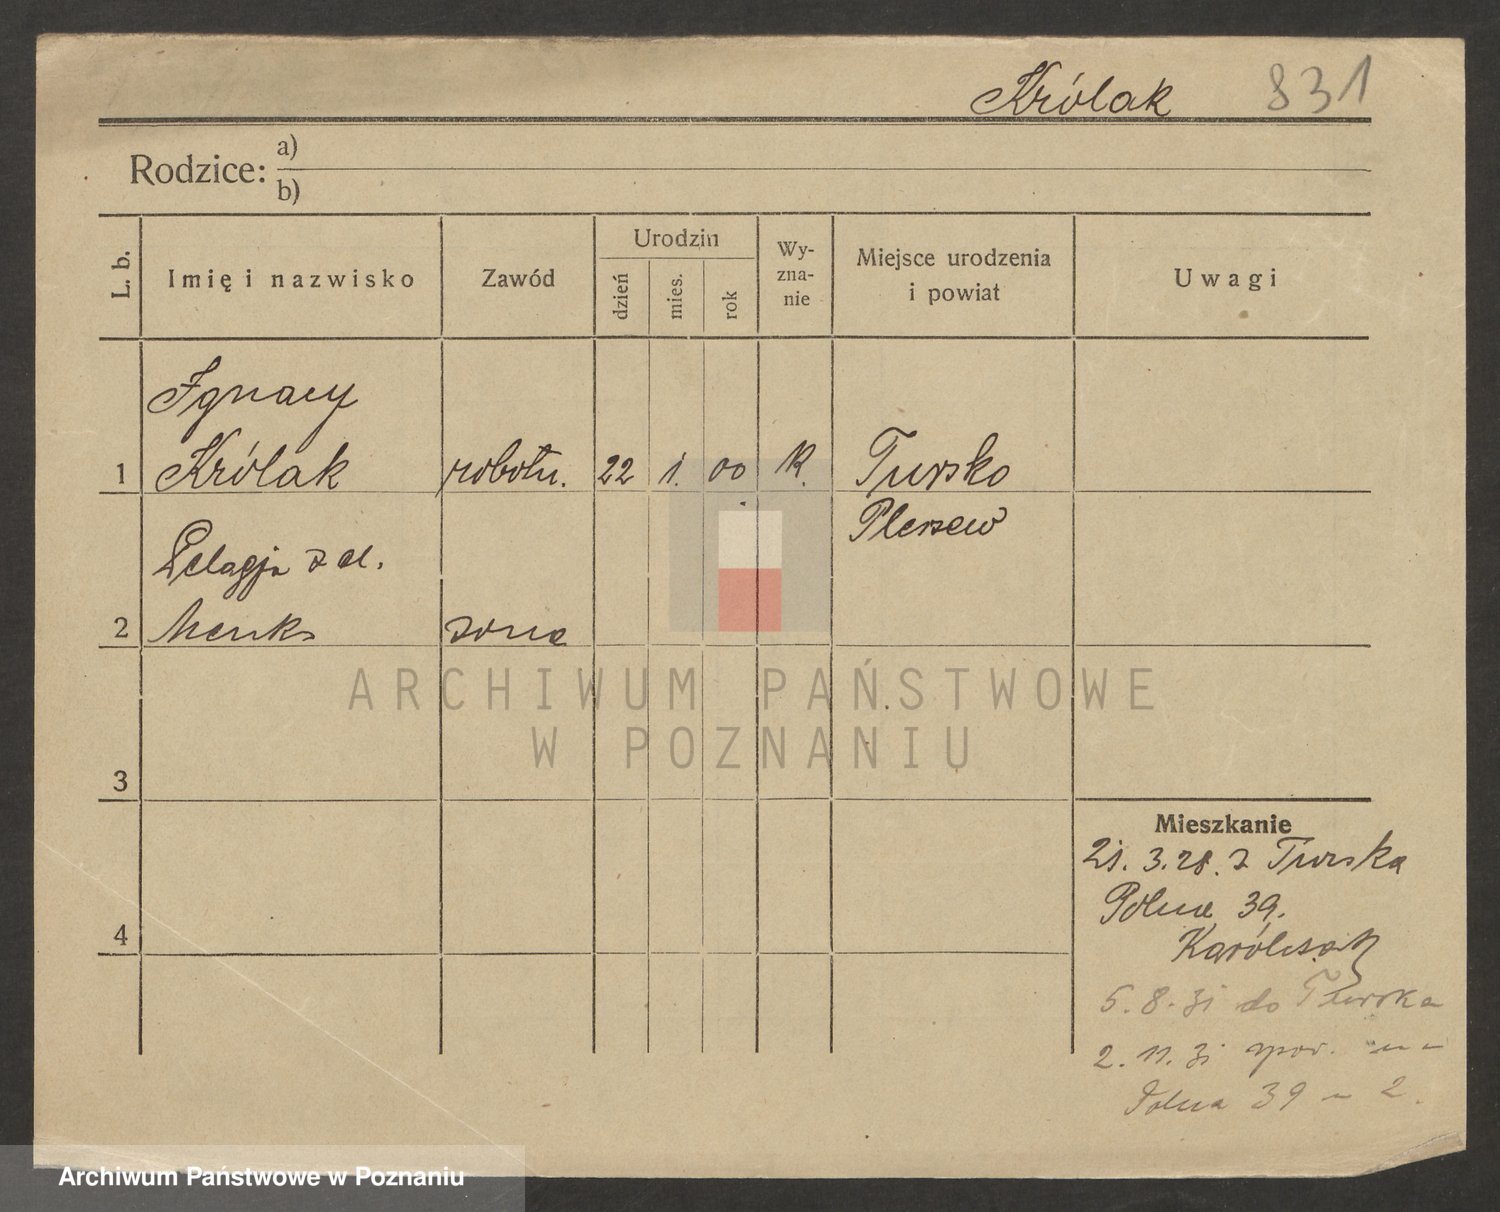 Królak 831
Rodzice: a)
b)
L. b.
Imię i nazwisko
Zawód
Urodzin
dzień
mies.
rok
Wy-
zna-
nie
Miejsce urodzenia
i powiat
Uwagi
Ignacy
1 Królak robotn. 22 1. 00 R. Tursko
Pleszew
Pelagja z d.
2 żona
ARCHIWUM PAŃSTWOWE
W POZNANIU
3
Mieszkanie
21. 3. 28. z Turska
Polna 39.
4
5. 8. 31 do Turska
2. 11. 31
Polna 39 2.
Archiwum Państwowe w Poznaniu